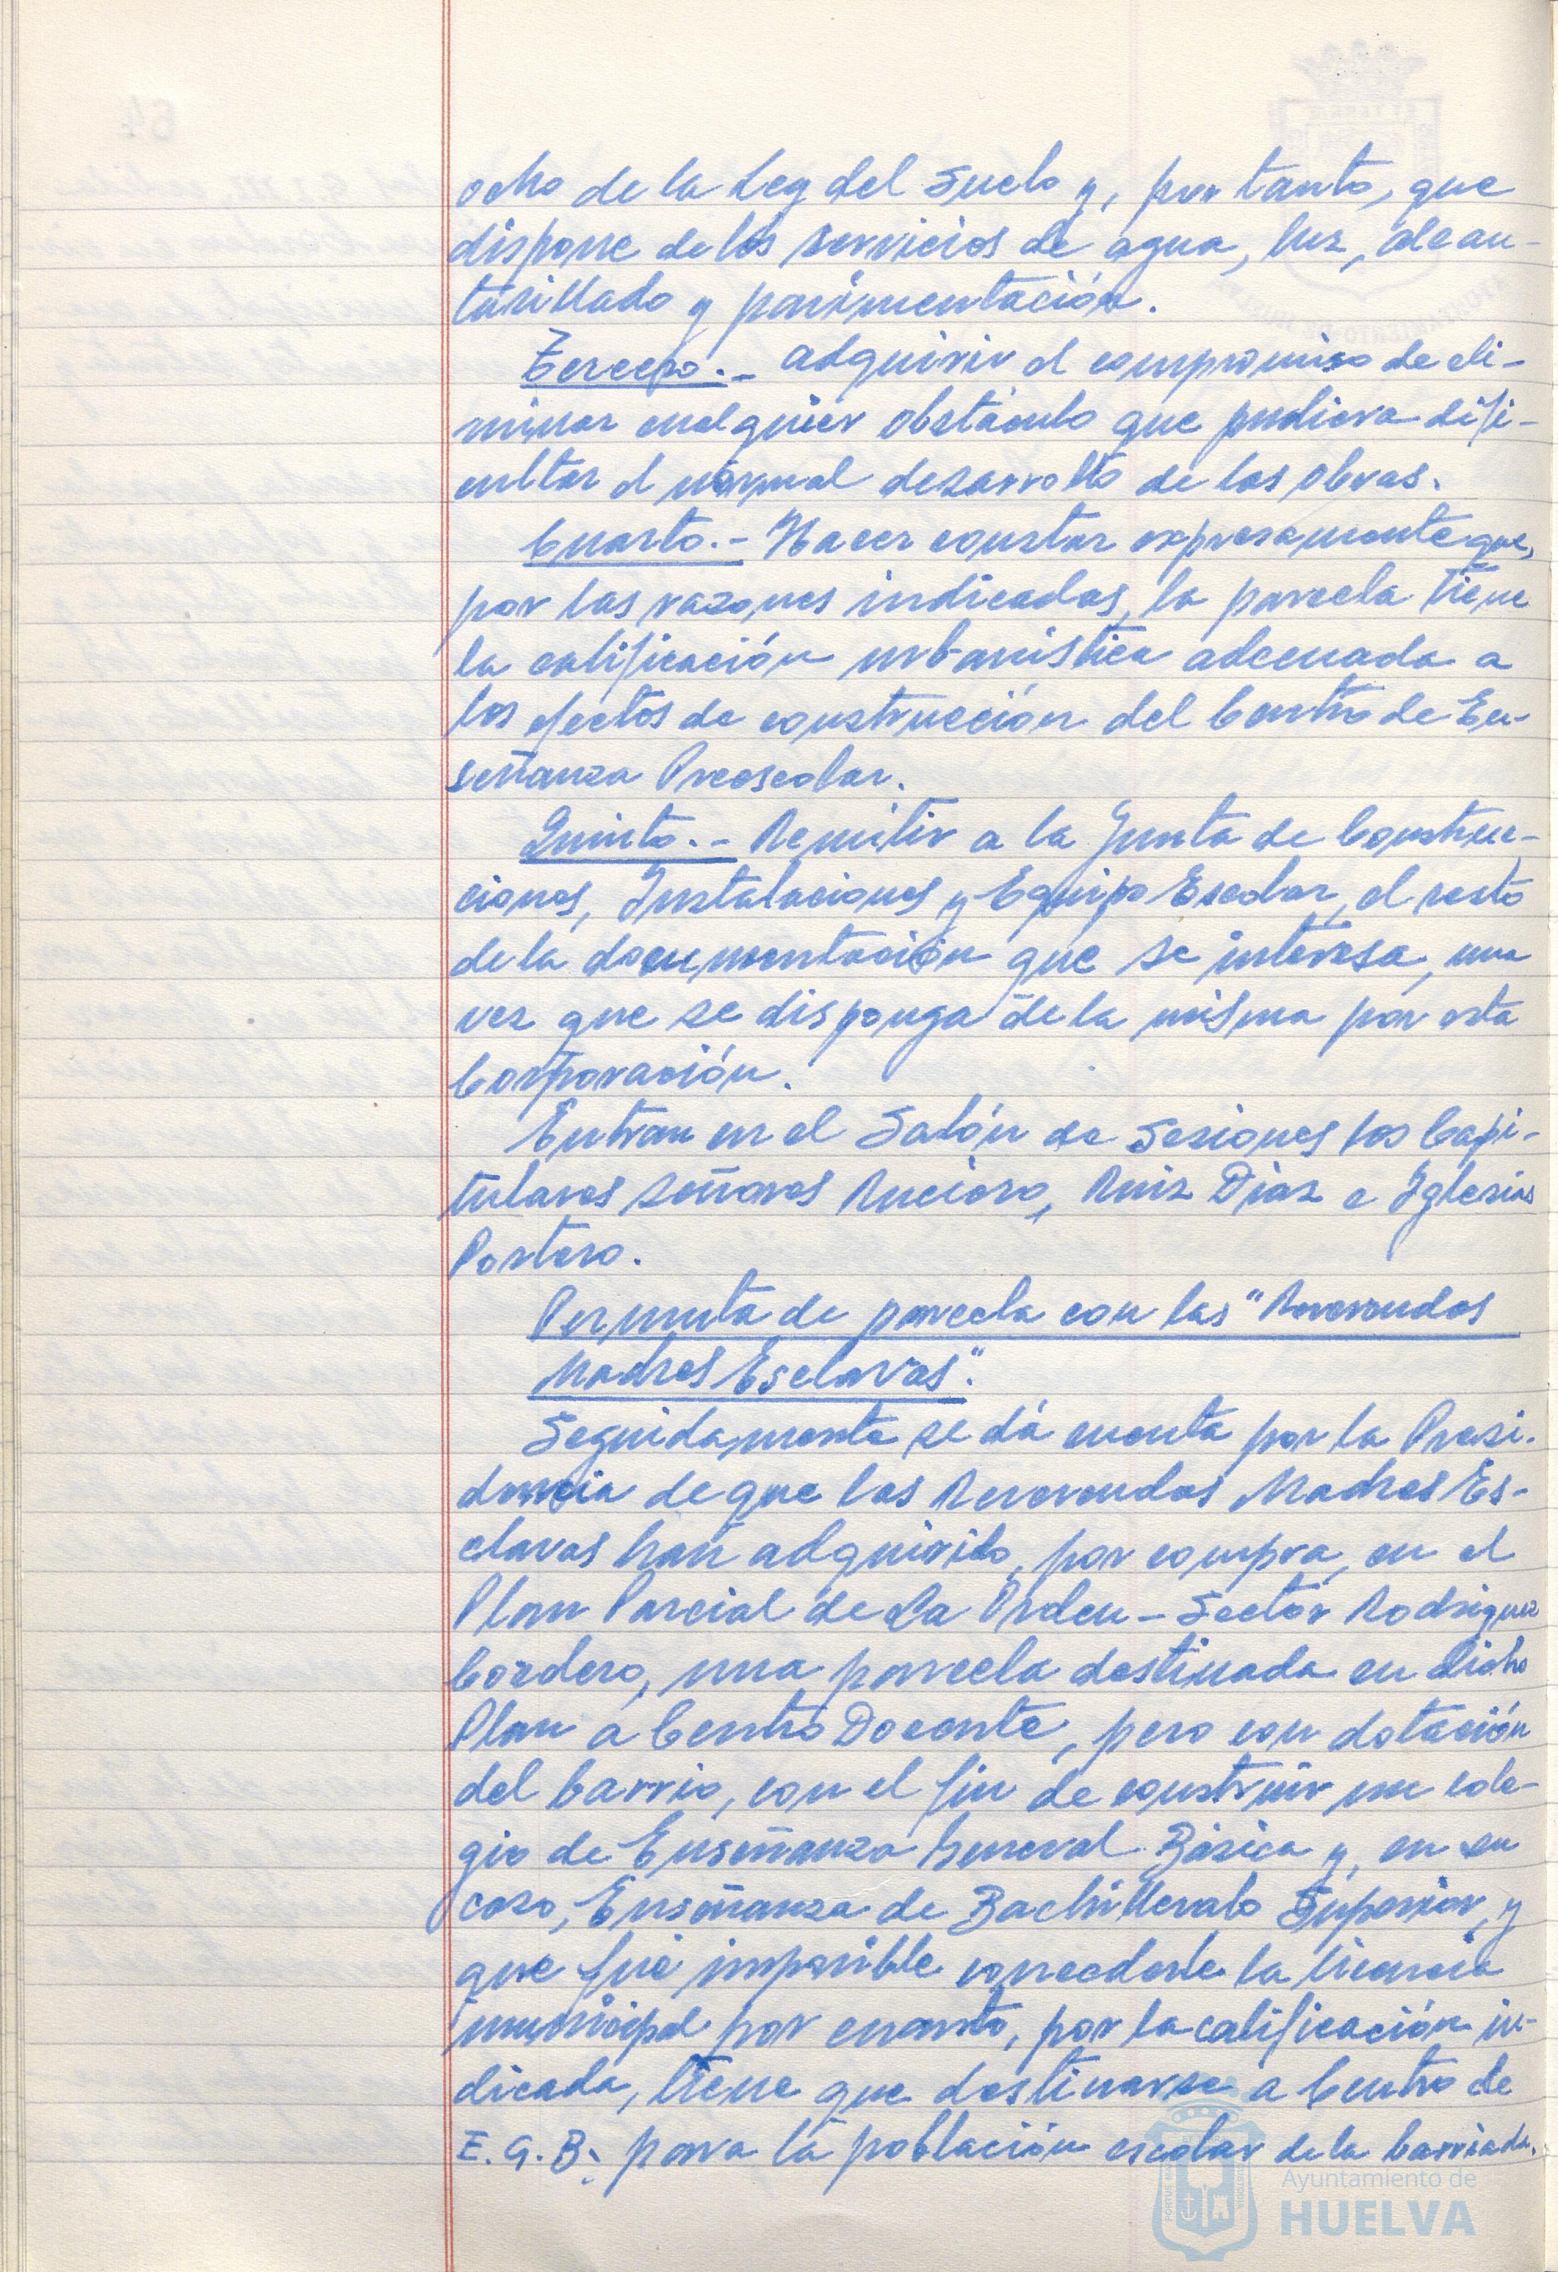 ocho de la Ley del Suelo y, por tanto, que
dispone de los servicios de agua, luz, alcan-
tarillado y pavimentación.
Tercero.- Adquirir el compromiso de eli-
minar cualquier obstáculo que pudiera difi-
cultar el normal desarrollo de las obras.
Cuarto.- Hacer constar expresamente que,
por las razones indicadas, la parcela tiene
la calificación urbanística adecuada a
los efectos de construcción del Centro de En-
señanza Preescolar.
Quinto.- Remitir a la Junta de Construc-
ciones, Instalaciones y Equipo Escolar, el resto
de la documentación que se interesa, una
vez que se disponga de la misma por esta
Corporación.
Entran en el Salón de Sesiones los Capi-
tulares señores Rucioso, Ruiz Diaz e Iglesias
Portero.
Permuta de parcela con las "Reverendas
Madres Esclavas".
Seguidamente se dá cuenta por la Presi-
dencia de que las Reverendas Madres Es-
clavas han adquirido, por compra, en el
Plan Parcial de La Orden - Sector Rodriguez
Cordero, una parcela destinada en dicho
Plan a Centro Docente, pero con dotación
del barrio, con el fin de construir un cole-
gio de Enseñanza General Básica y, en su
caso, Enseñanza de Bachillerato Superior, y
que fué imposible concederle la licencia
municipal por cuanto, por la calificación in-
dicada, tiene que destinarse a Centro de
E.G.B. para la población escolar de la barriada.
Ayuntamiento de
HUELVA